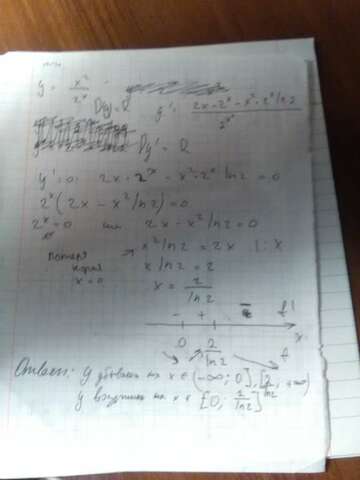 y = x²/2ˣ
Dy = R y' = (2x · 2ˣ - x² · 2ˣ ln 2)/2²ˣ
Dy' = R
y' = 0: 2x · 2ˣ - x² · 2ˣ ln 2 = 0
2ˣ(2x - x² ln 2) = 0
2ˣ = 0 или 2x - x² ln 2 = 0
x² ln 2 = 2x | : x
потеря корня x = 0
x ln 2 = 2
x = 2/ln 2
- + - f'
0 2/ln 2 x
f
Ответ: y убывает на x ∈ (-∞; 0], [2/ln 2; +∞)
y возрастает на x ∈ [0; 2/ln 2]